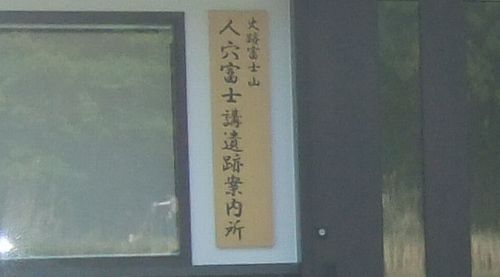 史跡富士山
人穴富士講遺跡案内所